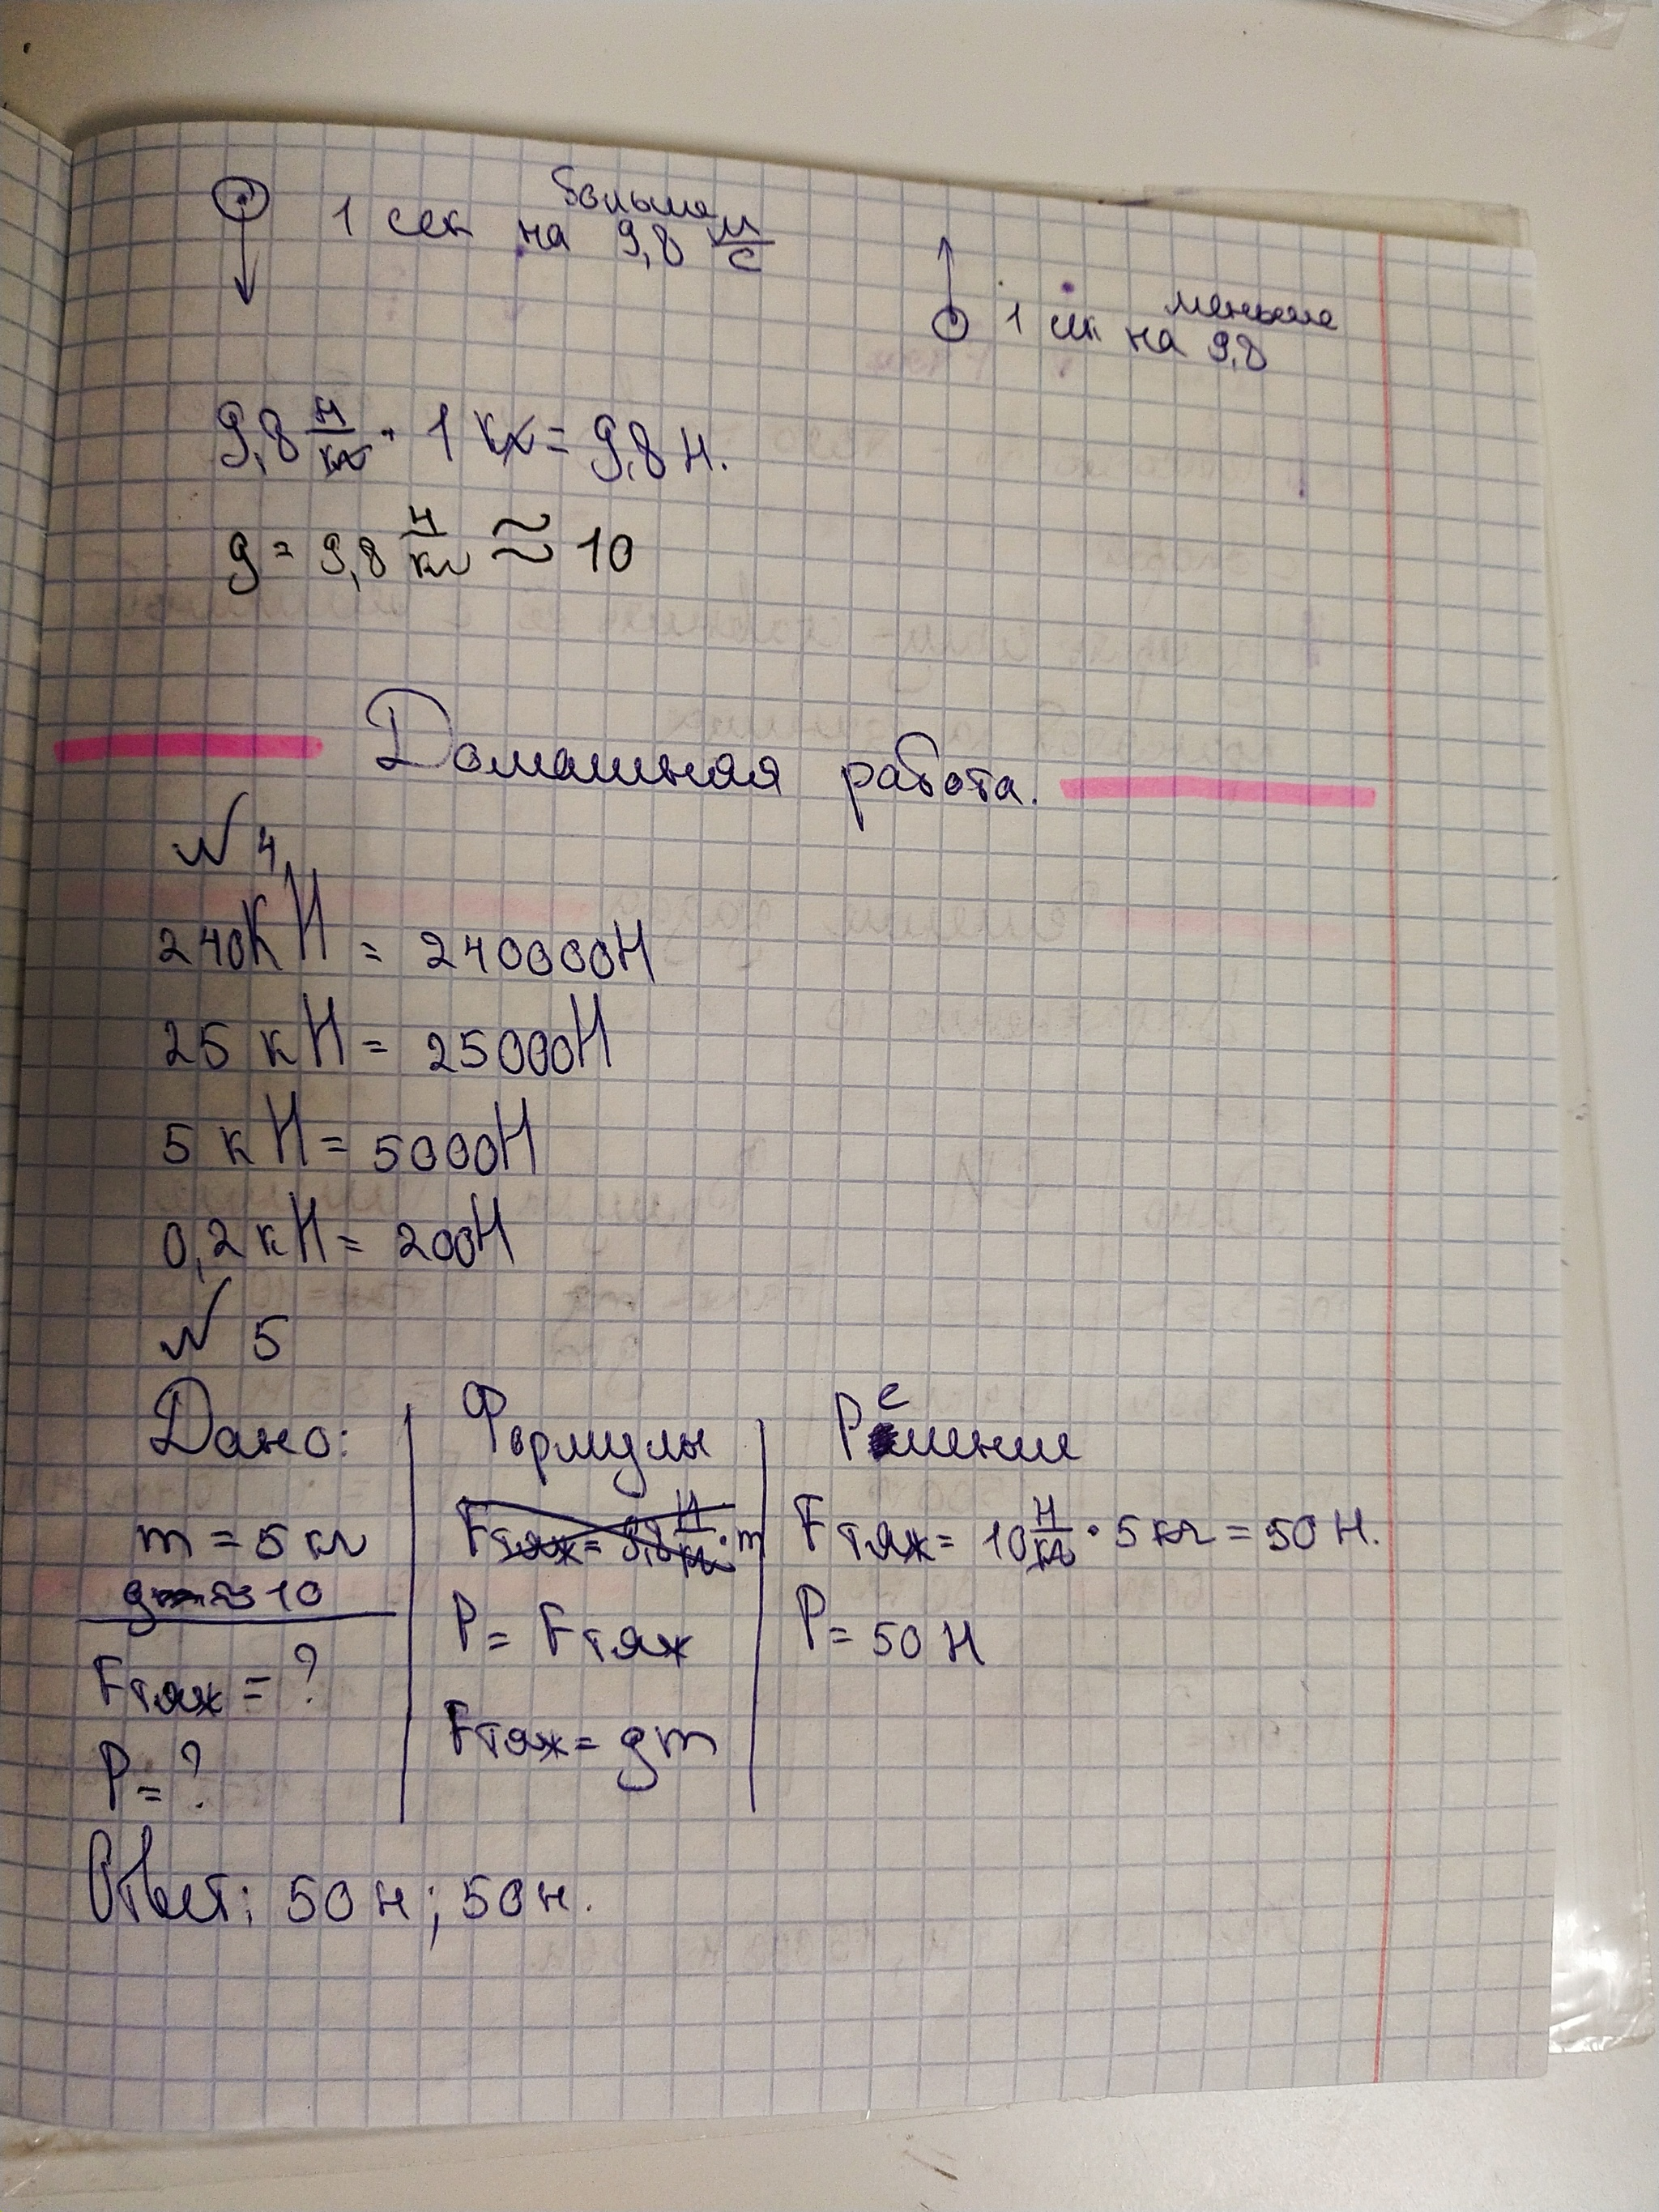 1 сек на 9,8 м/с
больше
1 сек на 9,8
меньше
9,8 Н/кг · 1 кг = 9,8 Н.
g = 9,8 Н/кг ≈ 10
Домашняя работа.
№ 4
240 кН = 240000Н
25 кН = 25000Н
5 кН = 5000Н
0,2 кН = 200Н
№ 5
Дано: Формулы Решение
m = 5 кг Fтяж = 9,8 Н/кг · m Fтяж = 10 Н/кг · 5 кг = 50 Н.
g ≈ 10
P = Fтяж P = 50 Н
Fтяж = ?
Fтяж = gm
P = ?
Ответ: 50 н; 50 н.